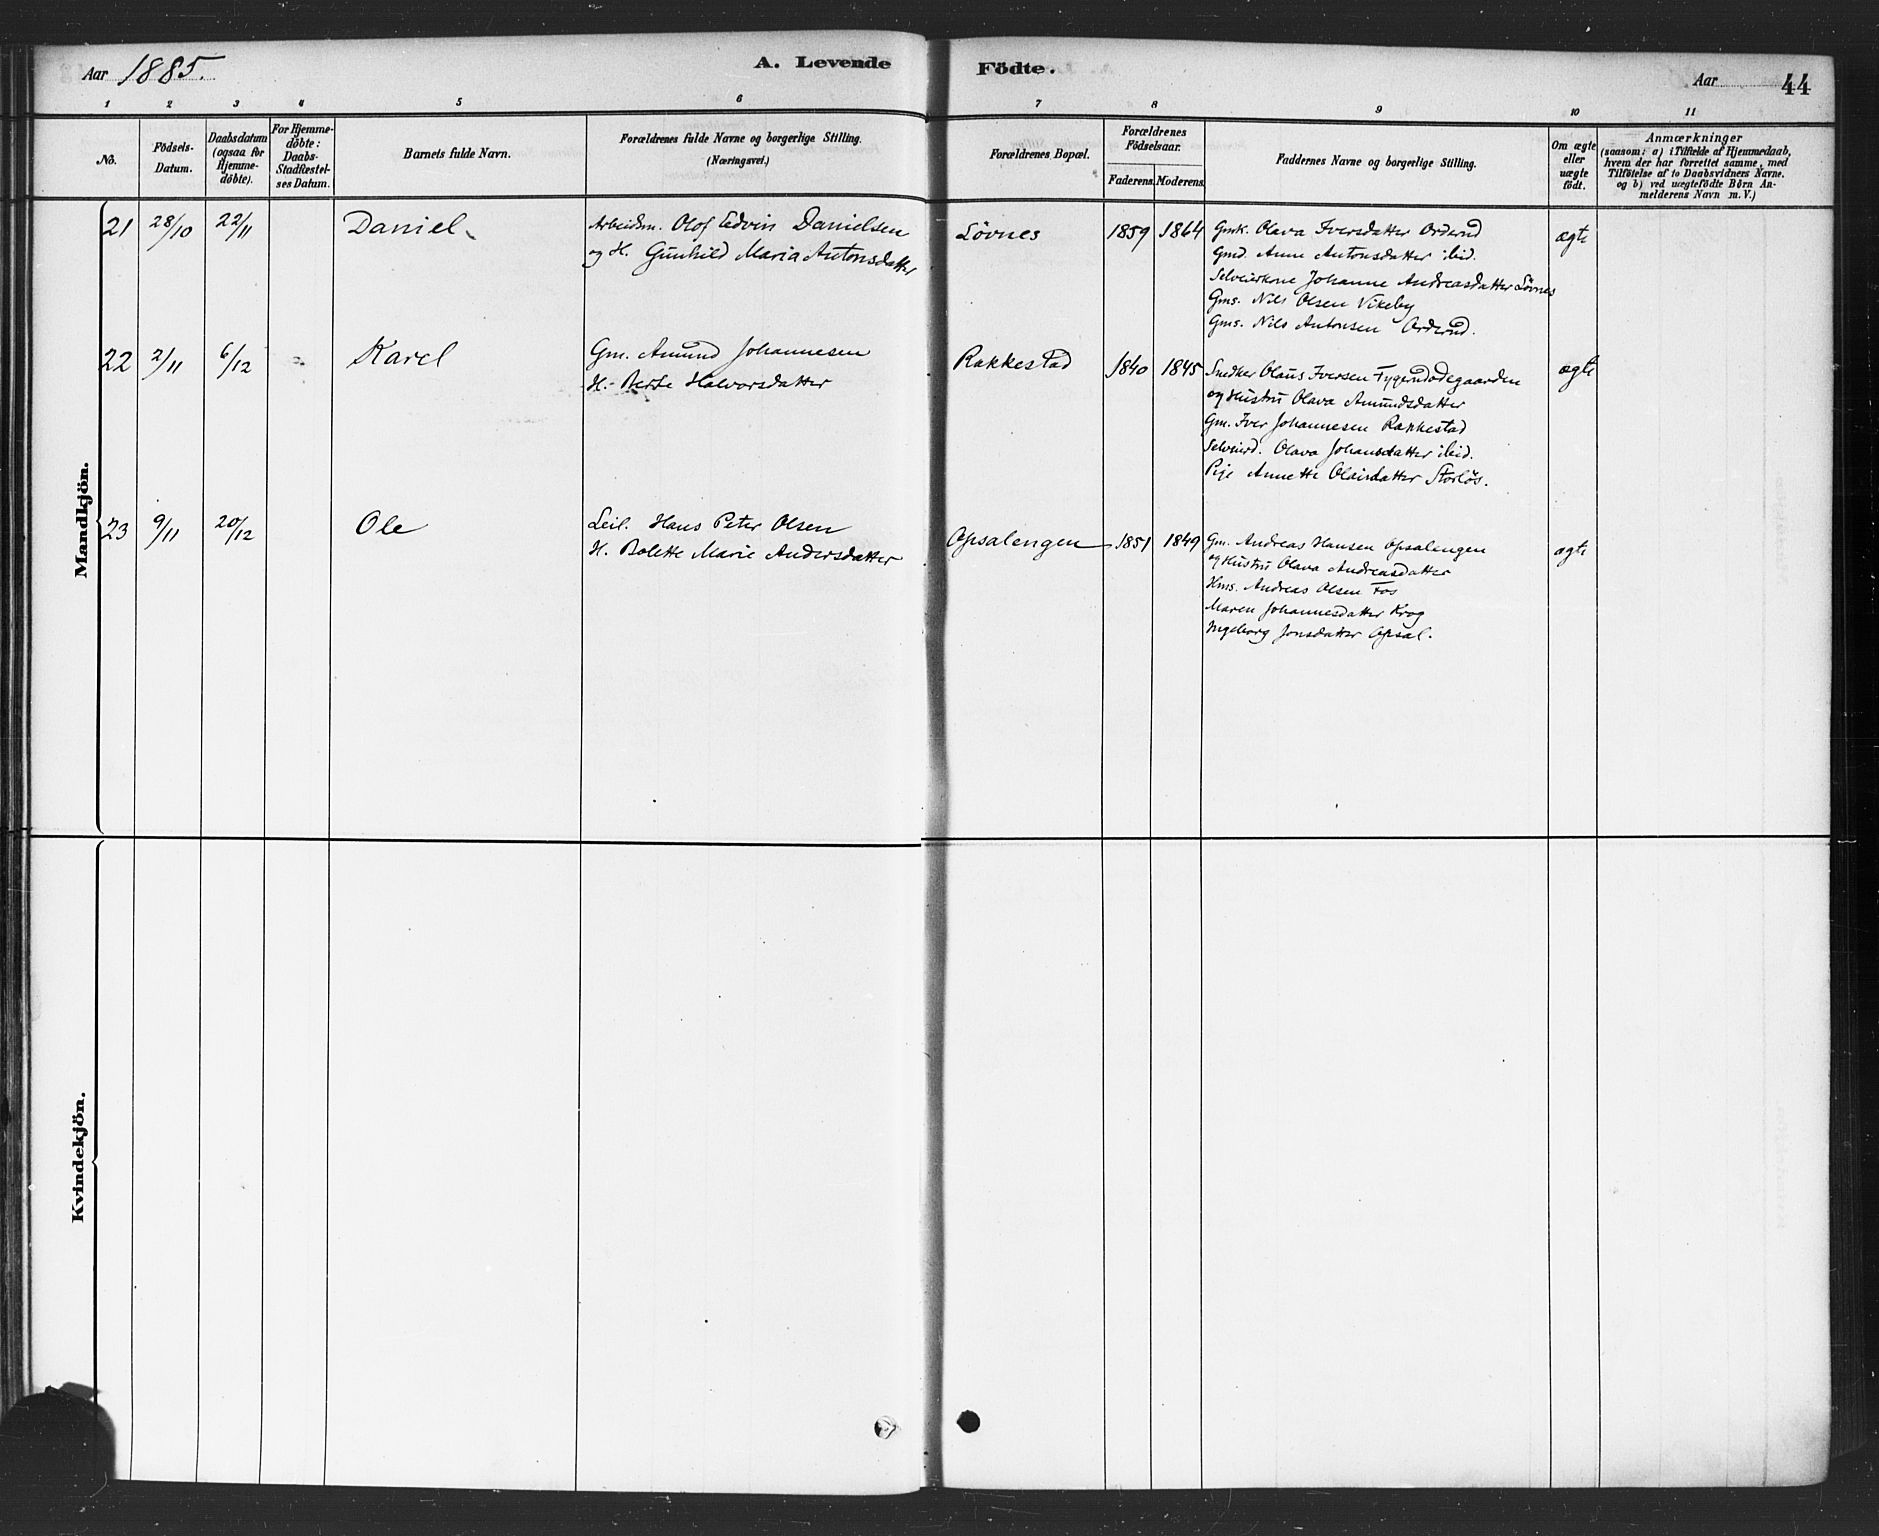 Aar 1885.
A. Levende Födte.
Aar 44
1 2 3 4 5 6 7 8 9 10 11
No.
Födsels-
Datum.
Daabsdatum
(ogsaa for
Hjemme-
döbte).
For Hjemme-
döbte:
Daabs-
Stadfæstel-
ses Datum.
Barnets fulde Navn.
Forældrenes fulde Navne og borgerlige Stilling.
(Næringsvei.)
Forældrenes Bopæl.
Forældrenes
Födselsaar.
Faderens. Moderens.
Faddernes Navne og borgerlige Stilling.
Om ægte
eller
uægte
födt.
Anmærkninger
(saasom: a) i Tilfælde af Hjemmedaab,
hvem der har forrettet samme, med
Tilföielse af to Daabsvidners Navne.
og b) ved uægtefödte Börn An-
melderens Navn m. V.)
Mandkjön.
21 28/10 22/11 Daniel
Arbeidsm. Olof Edvin Danielsen
og H. Gunhild Maria Antonsdatter
Lövnes 1859 1864
Gmk. Olava Iversdatter Orderud
Gmd. Anne Antonsdatter ibid.
Selveierkone Johanne Andreasdatter Lövnes
Gms. Nils Olsen Vikeby
Gms. Nils Antonsen Orderud.
ægte
22 2/11 6/12 Karel
Gm. Amund Johannesen
H. Berte Halvorsdatter
Rakkestad 1840 1845
Snedker Olaus Iversen
og Hustru Olava Amundsdatter
Gm. Iver Johannesen Rakkestad
Selveierd. Olava Johansdatter ibid.
Pige Annette Olausdatter Storlös.
ægte
23 9/11 20/12 Ole
Leil. Hans Peter Olsen
H. Bolette Marie Andersdatter
Opsalengen 1851 1849
Gm. Andreas Hansen Opsalengen
og Hustru Olava Andreasdatter
Hms. Andreas Olsen Fos
Maren Johannesdatter Krog
Ingeborg Jonsdatter Opsal.
ægte
Kvindekjön.